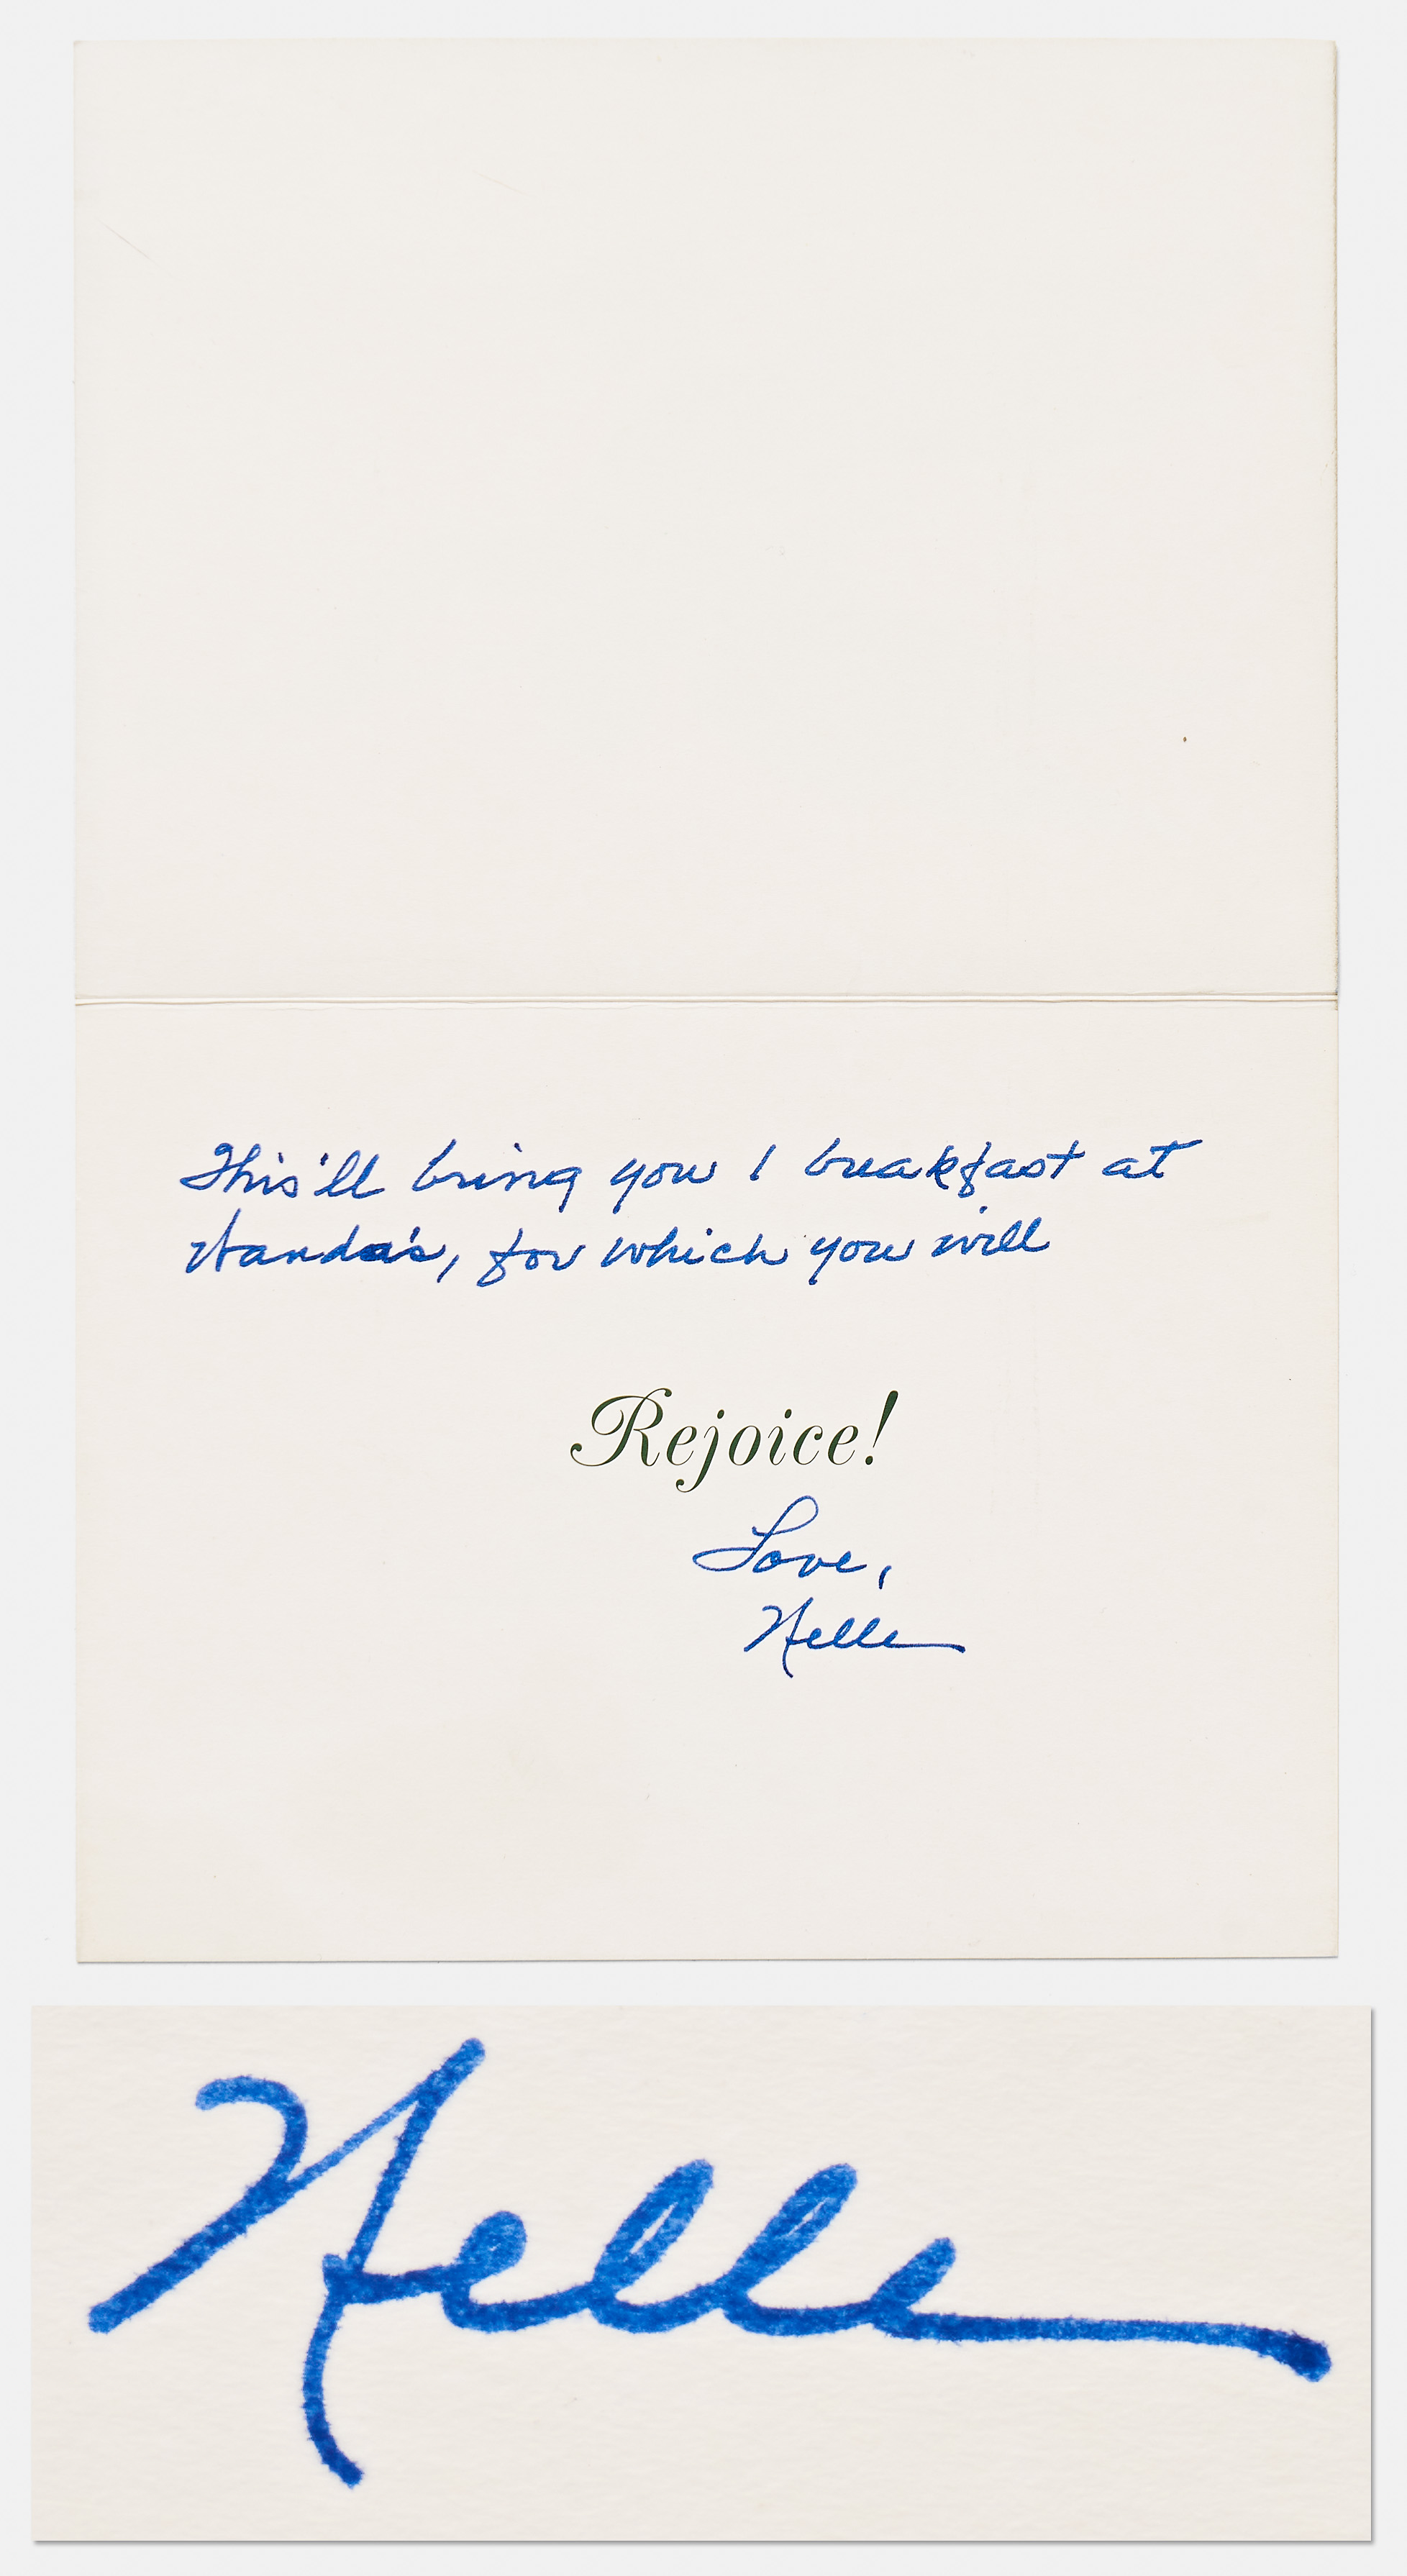 This'll bring you 1 breakfast at
Wanda's, for which you will
Rejoice!
Love,
Nelle
Nelle